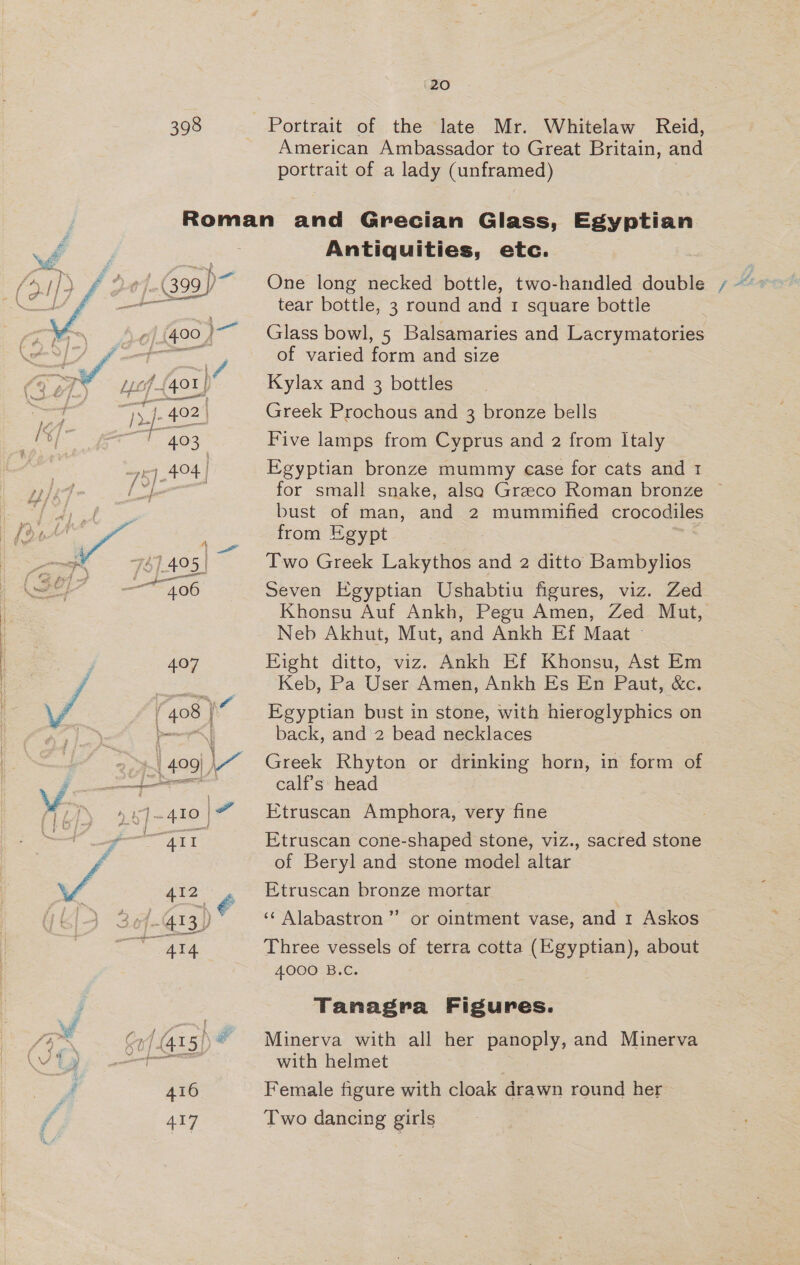 20
398 Portrait of the late Mr. Whitelaw Reid,
American Ambassador to Great Britain, and
portrait of a lady (unframed)
Roman and Grecian Glass, Egyptian
Antiquities, etc.
399 One long necked bottle, two-handled double
tear bottle, 3 round and 1 square bottle
400 Glass bowl, 5 Balsamaries and Lacrymatories
of varied form and size
401 Kylax and 3 bottles
402 Greek Prochous and 3 bronze bells
403 Five lamps from Cyprus and 2 from Italy
404 Egyptian bronze mummy case for cats and 1
for small snake, also Græco Roman bronze
bust of man, and 2 mummified crocodiles
from Egypt
405 Two Greek Lakythos and 2 ditto Bambylios
406 Seven Egyptian Ushabtiu figures, viz. Zed
Khonsu Auf Ankh, Pegu Amen, Zed Mut,
Neb Akhut, Mut, and Ankh Ef Maat
407 Eight ditto, viz. Ankh Ef Khonsu, Ast Em
Keb, Pa User Amen, Ankh Es En Paut, &c.
408 Egyptian bust in stone, with hieroglyphics on
back, and 2 bead necklaces
409 Greek Rhyton or drinking horn, in form of
calf's head
410 Etruscan Amphora, very fine
411 Etruscan cone-shaped stone, viz., sacred stone
of Beryl and stone model altar
412 Etruscan bronze mortar
413 “Alabastron” or ointment vase, and 1 Askos
414 Three vessels of terra cotta (Egyptian), about
4000 B.C.
Tanagra Figures.
415 Minerva with all her panoply, and Minerva
with helmet
416 Female figure with cloak drawn round her
417 Two dancing girls